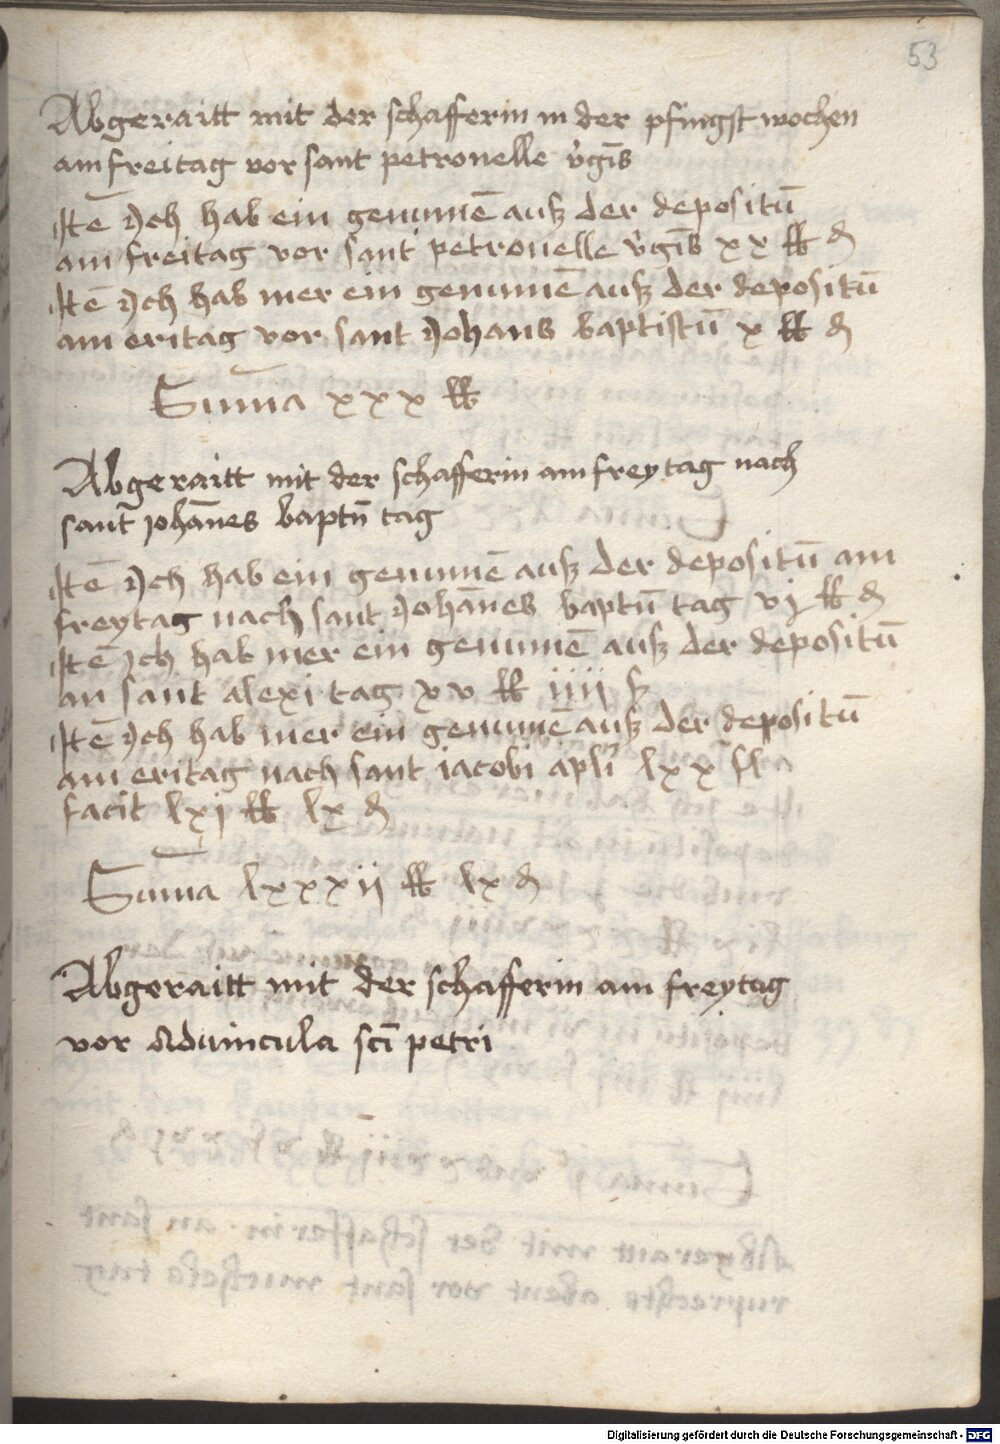 53
Abgeraitt mit der schafferin in der pfingst wochen
am freitag vor sant petronelle v̓gīs
Itē Ich hab ein genumē ausz der depositū
am freitag vor sant petronelle v̓gīs xx ℔ ₰
Itē Ich hab mer ein genumē ausz der depositū
am eritag vor sant Johans baptistū x ℔ ₰
Sum̄a xxx ℔
Abgeraitt mit der schafferin am freytag nach
sant johānes baptn̄ tag
Itē Ich hab ein genumē ausz der depositū am
freytag nach sant Johānes baptū tag vj ℔ ₰
Itē Ich hab mer ein genumē ausz der depositū
an sant alexi tag xv ℔ iiij ß
Itē Ich hab mer ein genumē ausz der depositū
am eritag nach sant iacobi apli̅ lxx fl
facit lxj ℔ lx ₰
Sum̄a lxxxij ℔ lx ₰
Abgeraitt mit der schafferin am freytag
vor Aduincula sc̄i petri
Digitalisierung gefördert durch die Deutsche Forschungsgemeinschaft - DFG